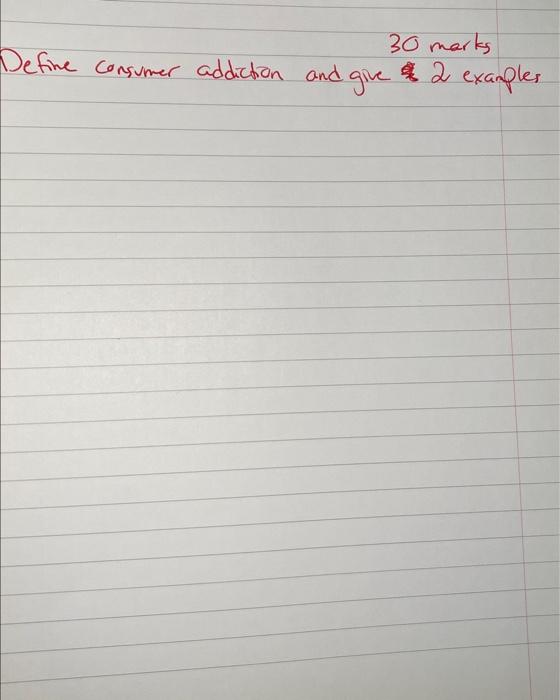 30 marks
Define consumer addiction and give 2 examples